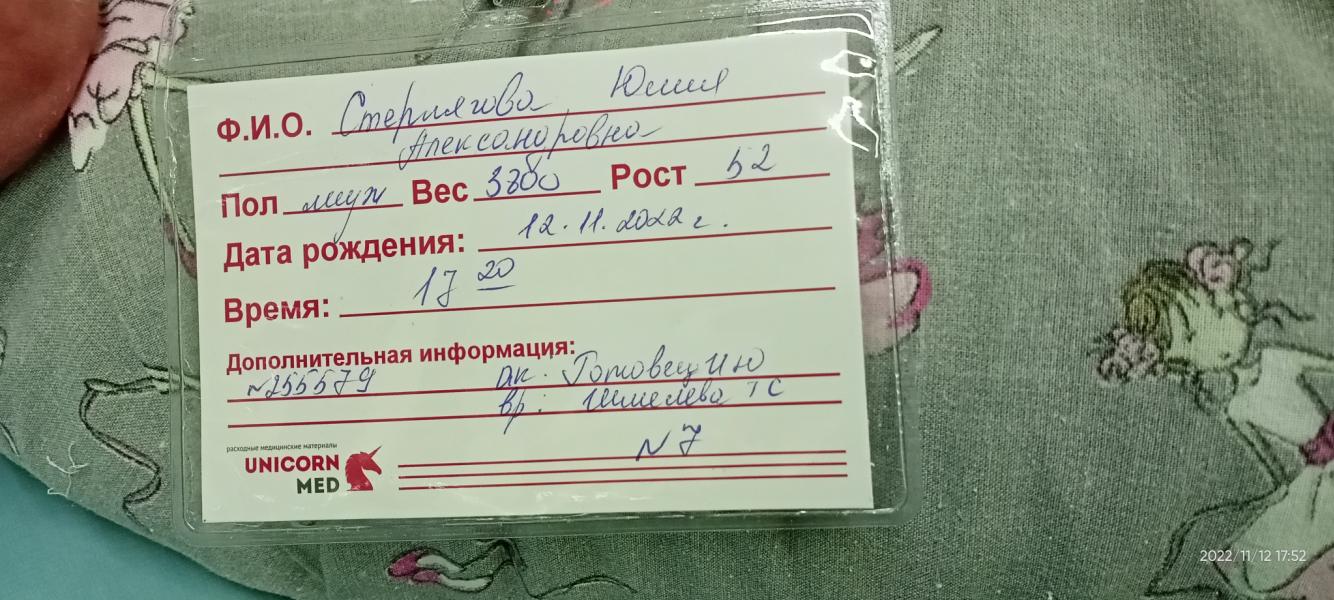 Ф.И.О. Стерлягова Юлия
Александровна
Пол муж Вес 3380 Рост 52
Дата рождения: 12.11.2022 г.
Время: 17 20
Дополнительная информация:
№255579 ак. Готовец И Ю
вр: Шмелева Т С
№7
расходные медицинские материалы
UNICORN
MED
2022/11/12 17:52